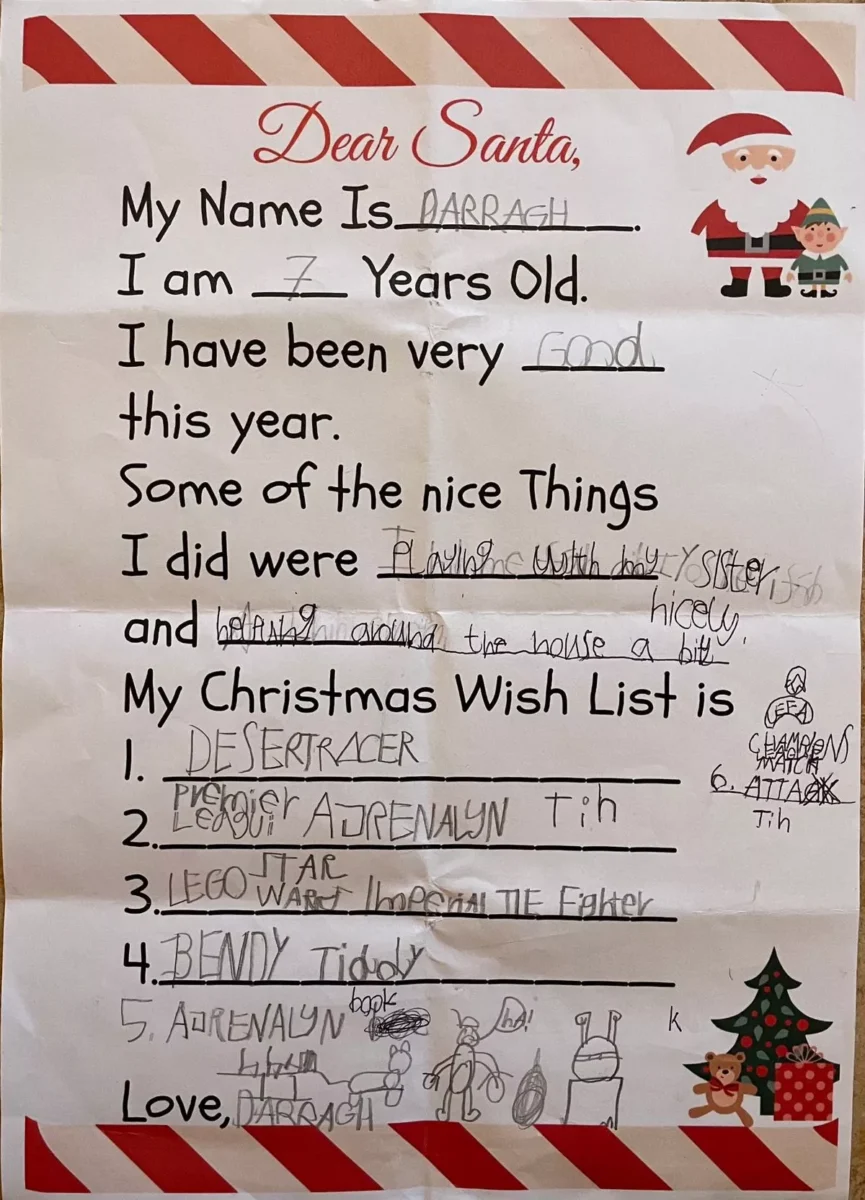 Dear Santa,
My Name Is DARRAGH.
I am 7 Years Old.
I have been very Good
this year.
Some of the nice Things
I did were Playing with my sister
nicely,
and helping around the house a bit
My Christmas Wish List is
1. DESERTRACER
2. PREMIER LEAGUE ADRENALYN Tin
3. LEGO STAR WARS Imperial TIE Fighter
4. BENDY Tiddy
5. ADRENALYN book
6. CHAMPIONS
MATCH
ATTAX
Tin
hA!
K
Love, DARRAGH